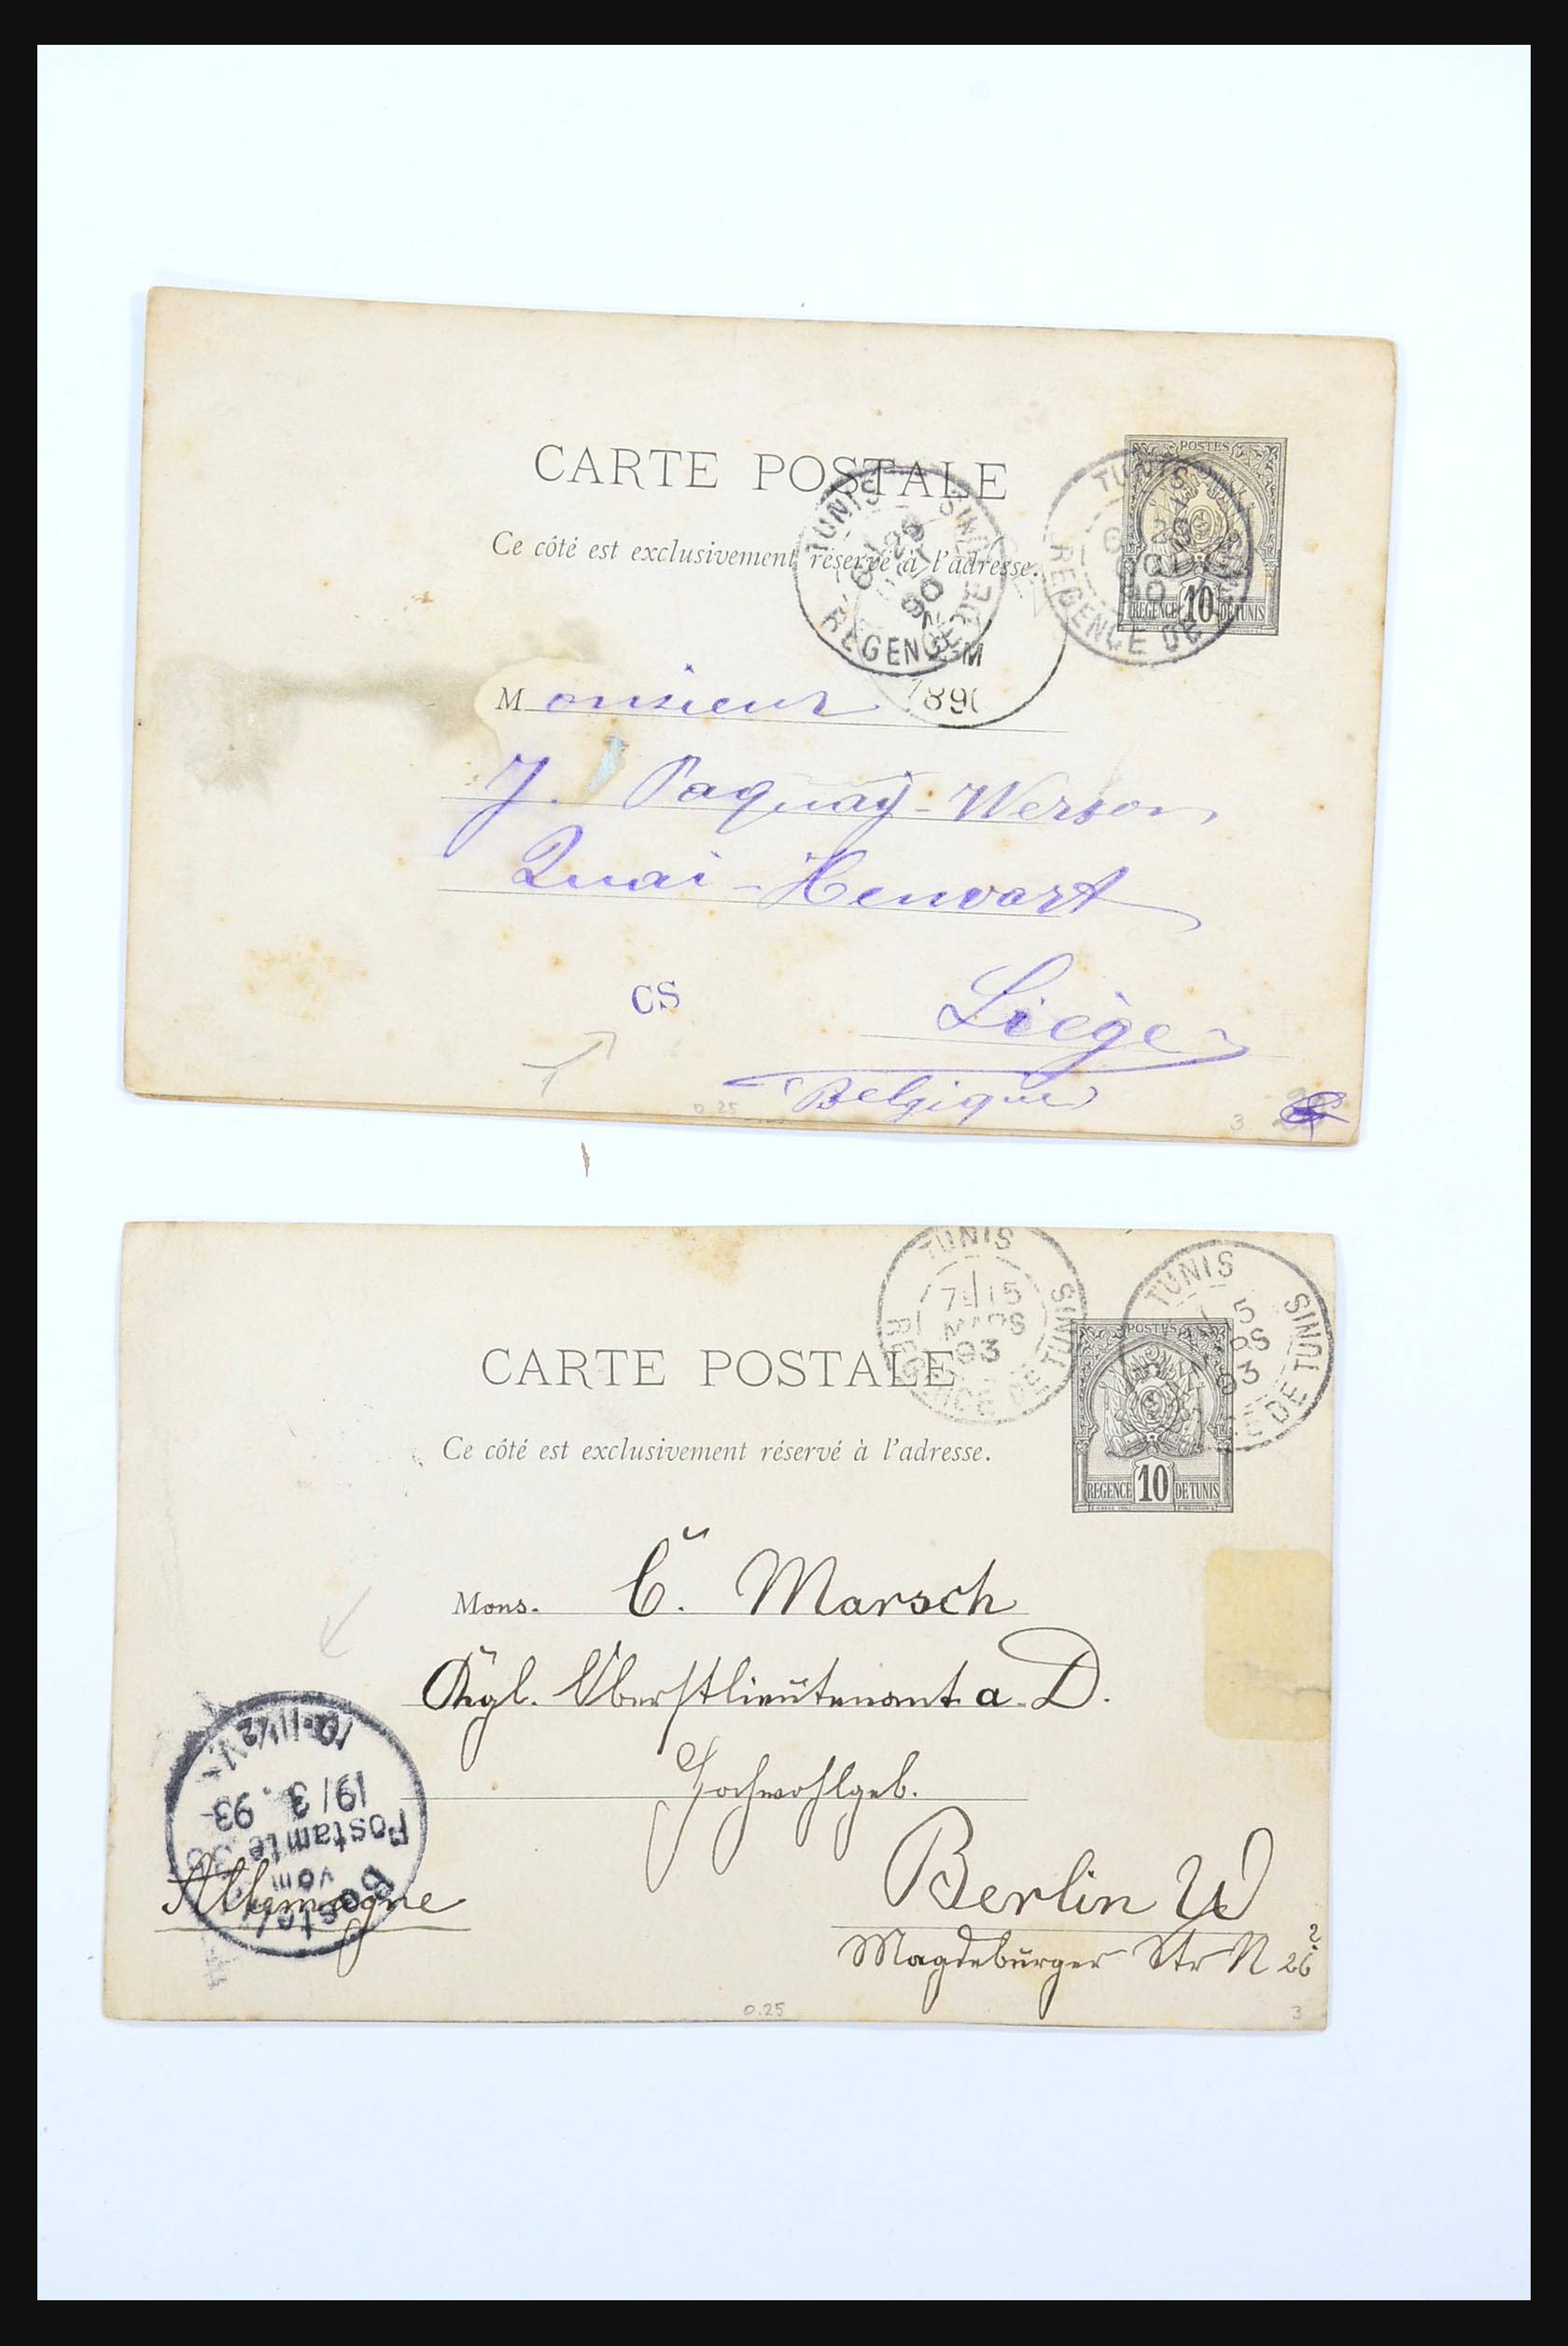 CARTE POSTALE
Ce côté est exclusivement réservé à l'adresse.
POSTES
REGENCE 10 DE TUNIS
TUNIS
REGENCE DE
TUNIS
REGENCE DE
1890
Monsieur
J. Paquay-Werson
Quai-Henvart
CS
Liège
(Belgique)
0.25
3
TUNIS
7E 15
MARS
93
REGENCE DE TUNIS
TUNIS
5
RS
93
DE TUNIS
POSTES
REGENCE 10 DE TUNIS
CARTE POSTALE
Ce côté est exclusivement réservé à l'adresse.
Mons. C. Marsch
Kgl. Oberstlieutenant a. D.
Hochwohlgeb.
Berlin W
Magdeburger Str N 26
Allemagne
Bestellt
vom
Postamte
19/3.93
10-11½ V.
0.25
3